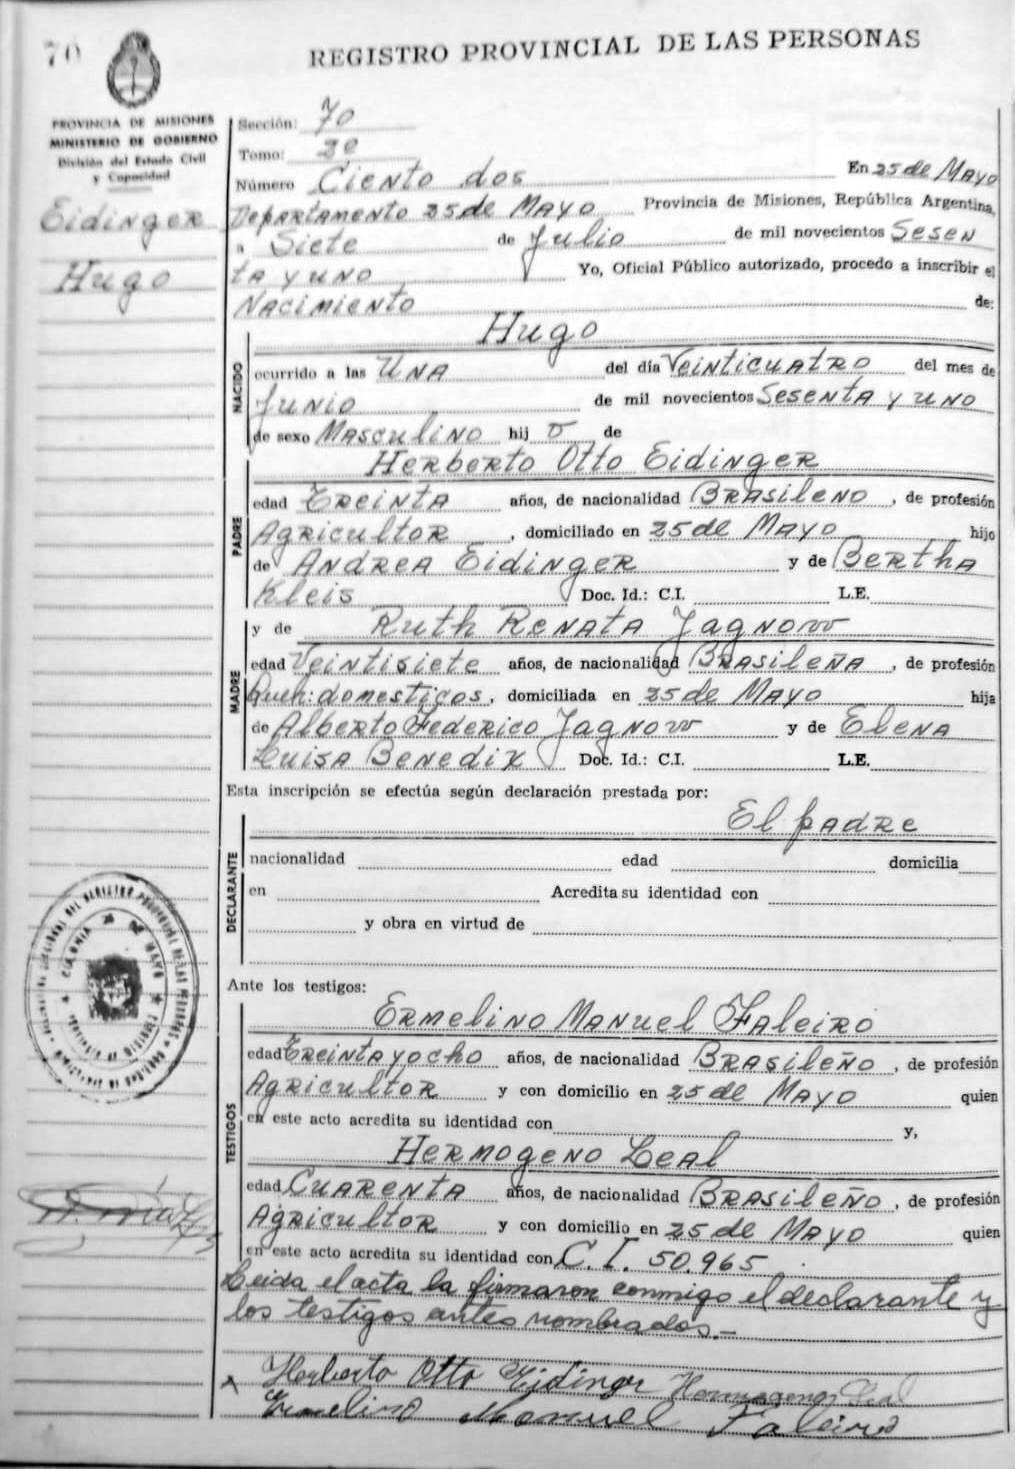 70
REGISTRO PROVINCIAL DE LAS PERSONAS
PROVINCIA DE MISIONES
MINISTERIO DE GOBIERNO
División del Estado Civil
y Capacidad
Eidinger
Hugo
Sección: 70
Tomo: 2º
Número Ciento dos En 25 de Mayo
Departamento 25 de Mayo Provincia de Misiones, República Argentina,
a Siete de Julio de mil novecientos Sesen
ta y uno Yo, Oficial Público autorizado, procedo a inscribir el
Nacimiento de:
NACIDO
Hugo
ocurrido a las Una del día Veinticuatro del mes de
Junio de mil novecientos Sesenta y uno
de sexo Masculino hij o de
PADRE
Herberto Otto Eidinger
edad Treinta años, de nacionalidad Brasileno, de profesión
Agricultor, domiciliado en 25 de Mayo hijo
de Andrea Eidinger y de Bertha
Kleis Doc. Id.: C.I. L.E.
MADRE
y de Ruth Renata Jagnow
edad Veintisiete años, de nacionalidad Brasileña, de profesión
Queh: domesticos, domiciliada en 25 de Mayo hija
de Alberto Federico Jagnow y de Elena
Luisa Benedix Doc. Id.: C.I. L.E.
Esta inscripción se efectúa según declaración prestada por:
DECLARANTE
El padre
nacionalidad edad domicilia
en Acredita su identidad con
y obra en virtud de
Ante los testigos:
TESTIGOS
Ermelino Manuel Faleiro
edad Treinta y ocho años, de nacionalidad Brasileño, de profesión
Agricultor y con domicilio en 25 de Mayo quien
en este acto acredita su identidad con y,
Hermogeno Leal
edad Cuarenta años, de nacionalidad Brasileño, de profesión
Agricultor y con domicilio en 25 de Mayo quien
en este acto acredita su identidad con C.I. 50.965
Leida el acta la firmaron conmigo el declarante y
los testigos antes nombrados.-
Herberto Otto Eidinger Hermogeno Leal
Ermelino Manuel Faleiro